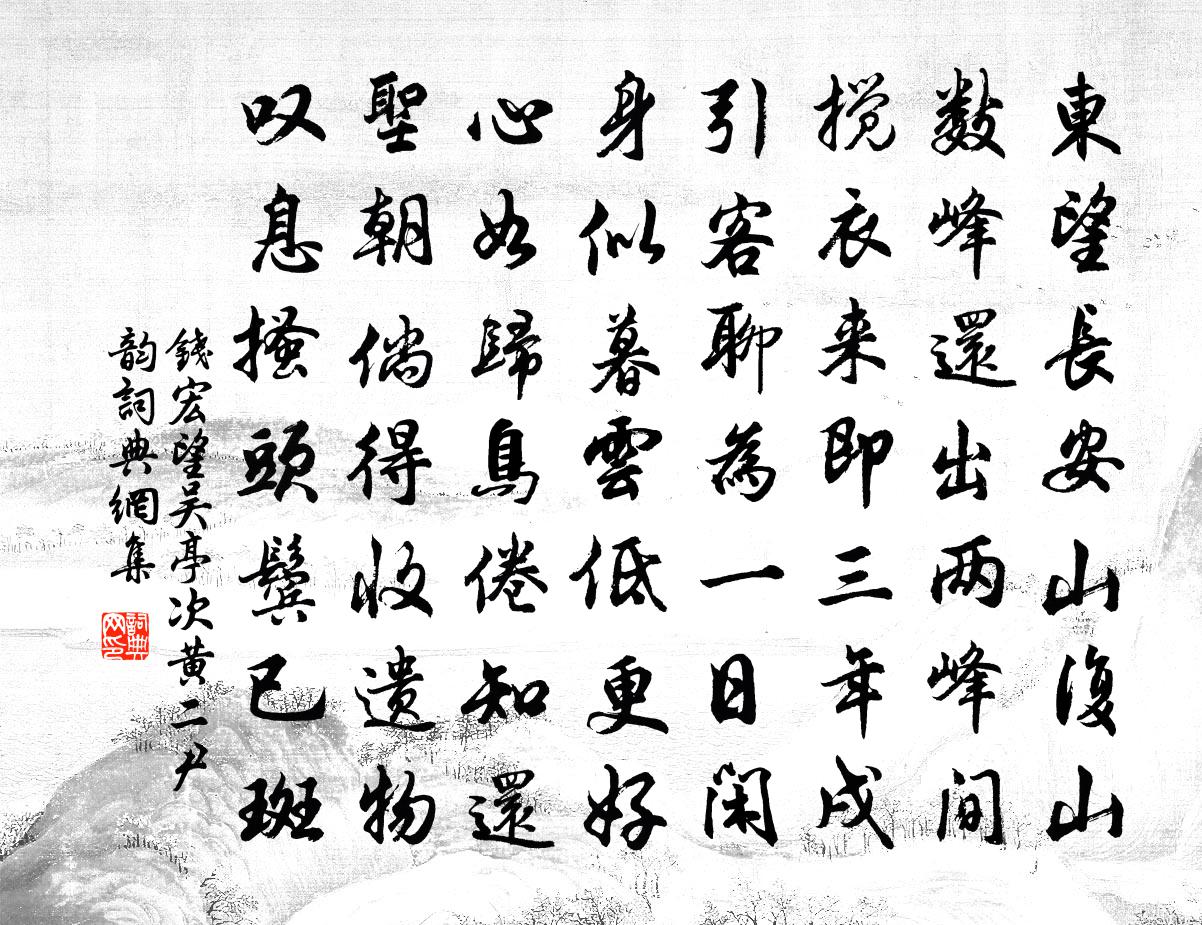 東望長安山復山
數峰還出兩峰間
攬衣来即三年戍
引客聊為一日閑
身似暮雲低更好
心如歸鳥倦知還
聖朝倘得收遺物
叹息搔頭鬓已斑
錢宏望吴亭次黄二尹
韵詞典網集
詞典
网印